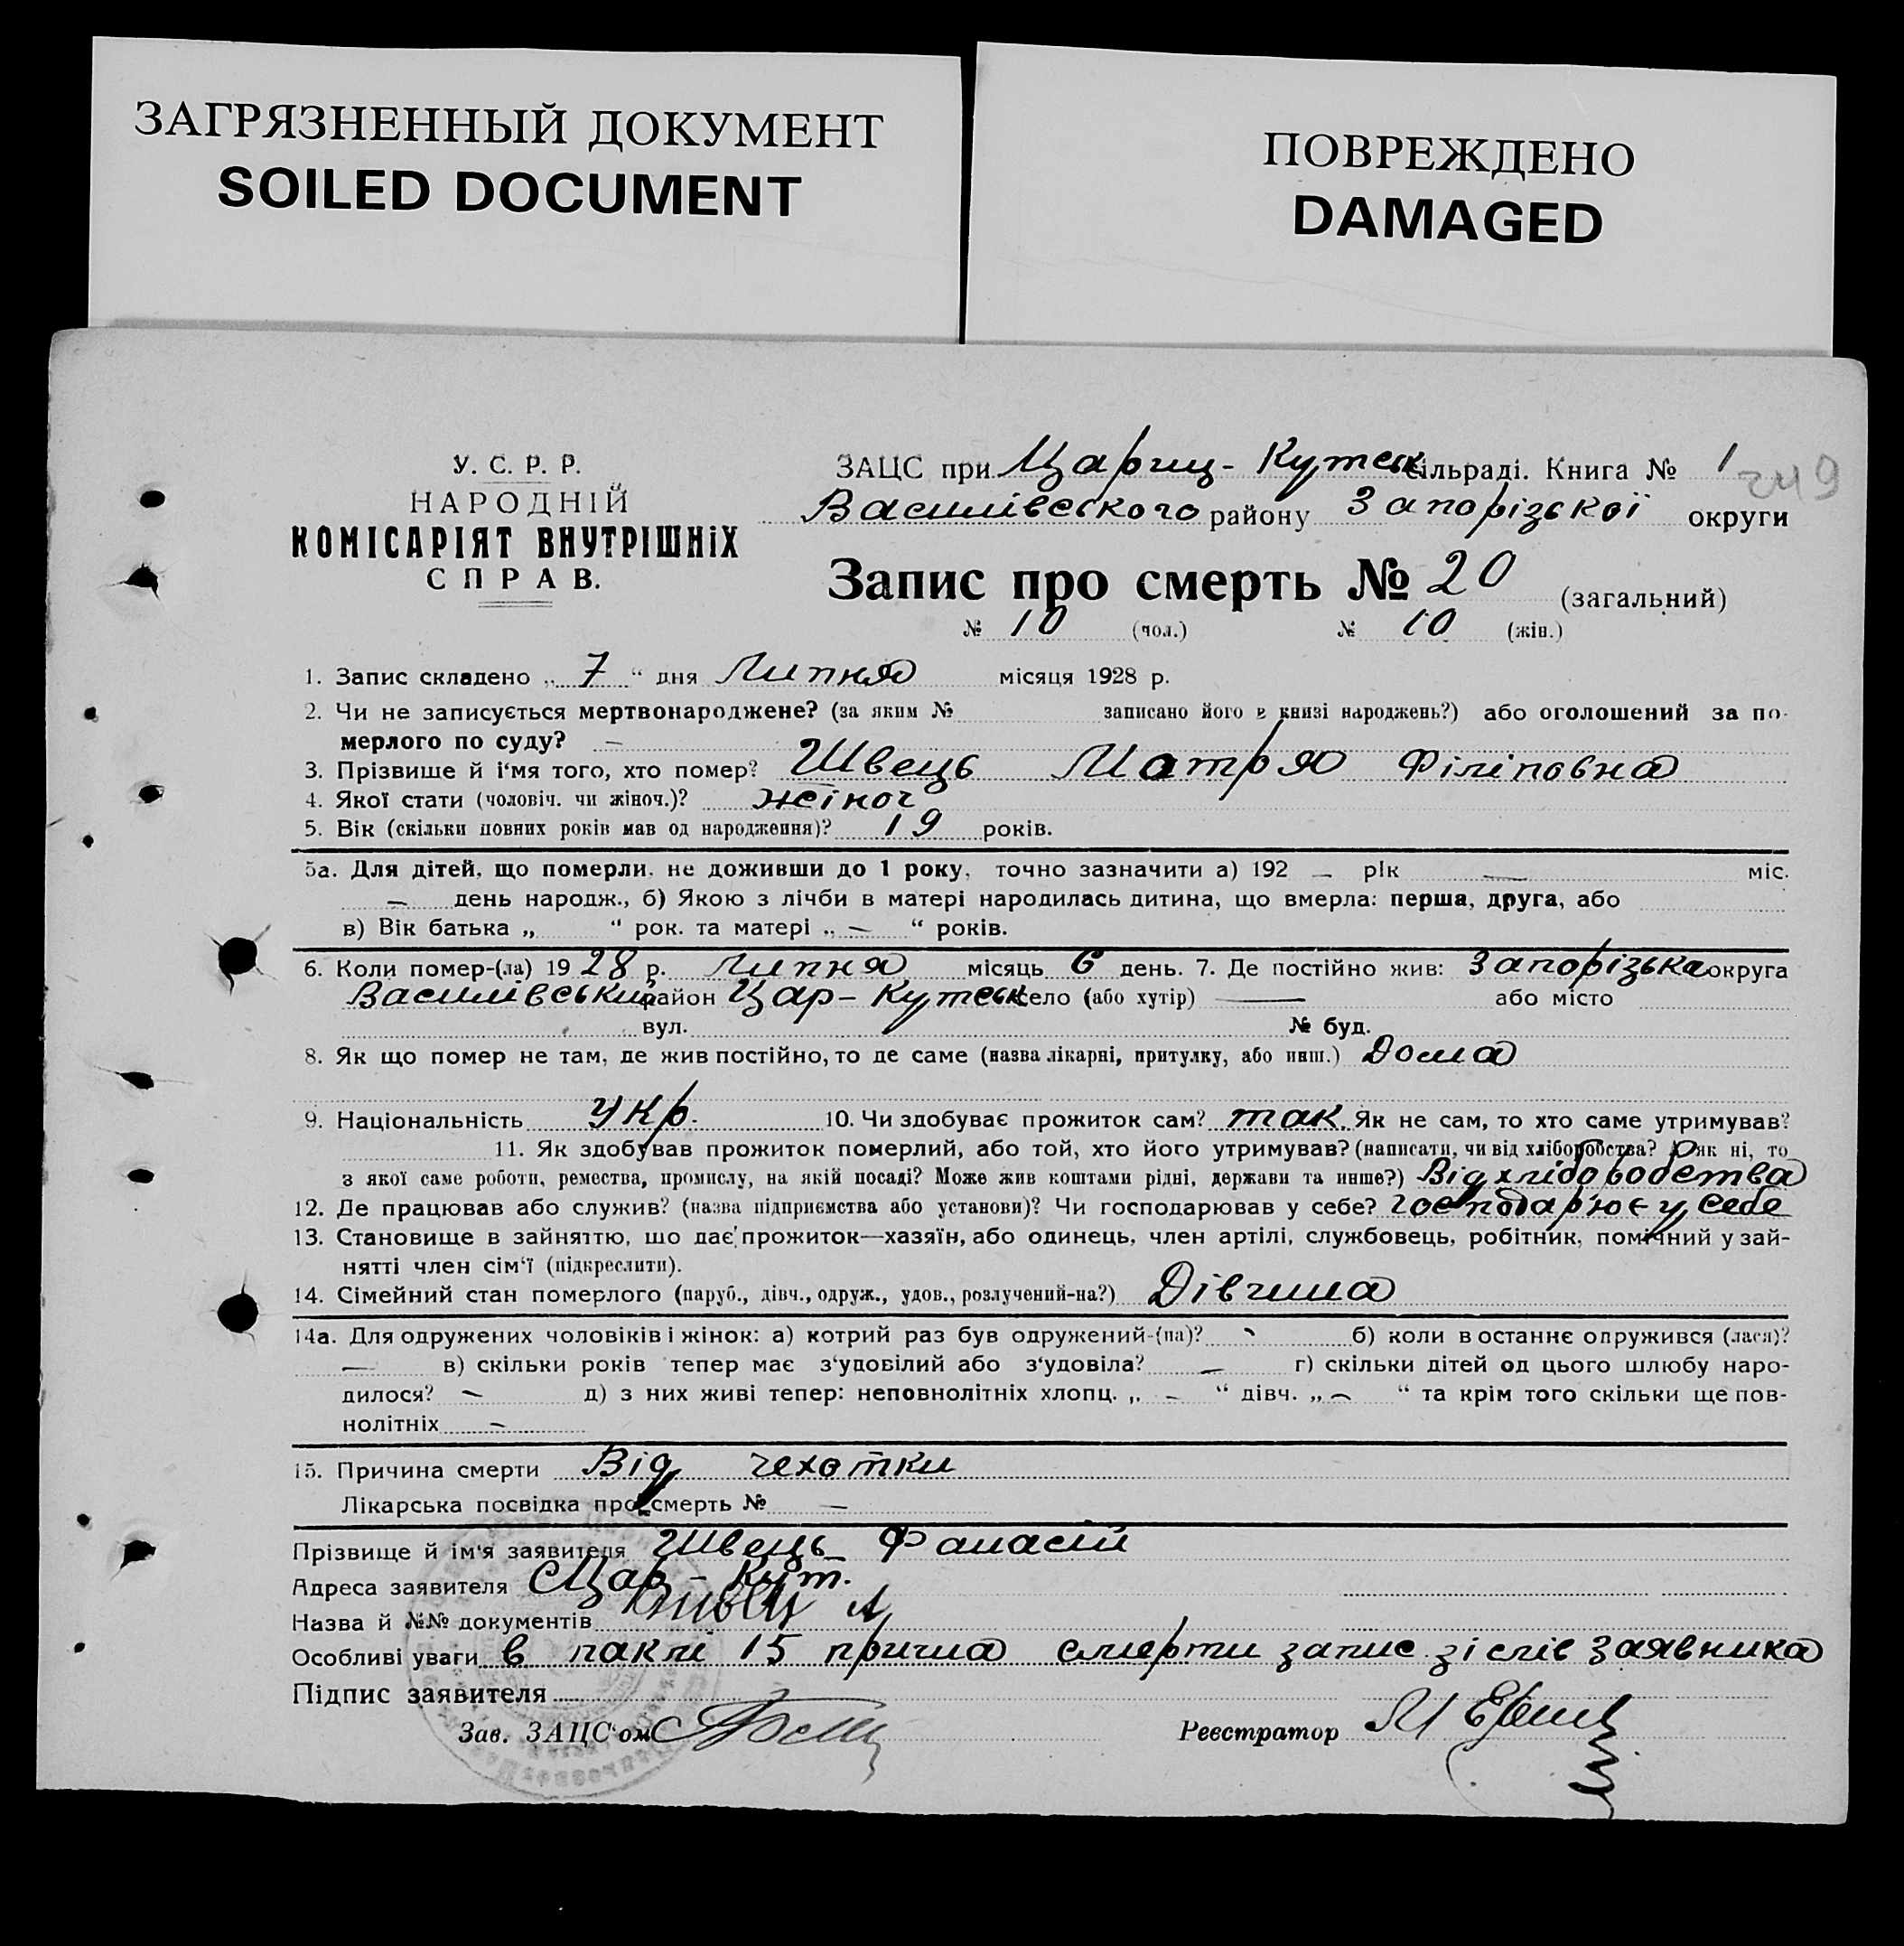 ЗАГРЯЗНЕННЫЙ ДОКУМЕНТ
SOILED DOCUMENT
ПОВРЕЖДЕНО
DAMAGED
У. С. Р. Р.
НАРОДНІЙ
КОМІСАРІЯТ ВНУТРІШНіХ
СПРАВ.
ЗАЦС при Цариц-Кутськ сільраді. Книга № 1
249
Василівського району Запорізької округи
Запис про смерть № 20 (загальний)
№ 10 (чол.) № 10 (жін.)
1. Запис складено „ 7 “ дня Липня місяця 1928 р.
2. Чи не записується мертвонароджене? (за яким № записано його в книзі народжень?) або оголошений за по-
мерлого по суду? —
3. Прізвище й і‘мя того, хто помер? Швець Матря Філіповна
4. Якої стати (чоловіч. чи жіноч.)? жіноч
5. Вік (скільки повних років мав од народження)? 19 років.
5а. Для дітей, що померли, не доживши до 1 року, точно зазначити а) 192 — рік — міс.
— день народж., б) Якою з лічби в матері народилась дитина, що вмерла: перша, друга, або
в) Вік батька „ “ рок. та матері „ — “ років.
6. Коли помер-(ла) 1928 р. Липня місяць 6 день. 7. Де постійно жив: Запорізька округа
Василівський район Цар-Кутськ село (або хутір) — або місто
вул. № буд.
8. Як що помер не там, де жив постійно, то де саме (назва лікарні, притулку, або инш.) Дома
9. Національність Укр. 10. Чи здобуває прожиток сам? так. Як не сам, то хто саме утримував?
11. Як здобував прожиток померлий, або той, хто його утримував? (написати, чи від хліборобства? А як ні, то
з якої саме роботи, ремества, промислу, на якій посаді? Може жив коштами рідні, держави та инше?) Від хліборобства
12. Де працював або служив? (назва підприємства або установи)? Чи господарював у себе? господар'ює у себе
13. Становище в зайняттю, що дає прожиток—хазяїн, або одинець, член артілі, службовець, робітник, помічний у зай-
нятті член сім‘ї (підкреслити).
14. Сімейний стан померлого (паруб., дівч., одруж., удов., розлучений-на?) Дівчина
14а. Для одружених чоловіків і жінок: а) котрий раз був одружений-(на)? - б) коли в останнє опружився (лася)?
— в) скільки років тепер має з‘удовілий або з‘удовіла? — г) скільки дітей од цього шлюбу наро-
дилося? — д) з них живі тепер: неповнолітніх хлопц. „ — “ дівч. „ — “ та крім того скільки ще пов-
нолітніх —
15. Причина смерти Від чехотки
Лікарська посвідка про смерть № —
Прізвище й ім‘я заявителя Швець Фанасій
Адреса заявителя С Цар-Кут.
Назва й №№ документів Швець А
Особливі уваги в пакті 15 причина смерти запис зі слів заявника
Підпис заявителя
Зав. ЗАЦС‘ом
Реєстратор